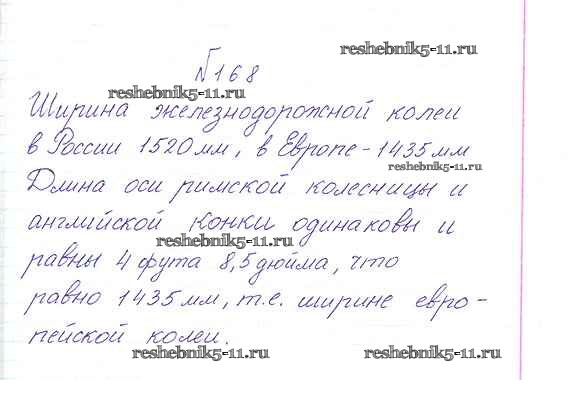 reshebnik5-11.ru
№168
reshebnik5-11.ru
Ширина железнодорожной колеи
в России 1520 мм, в Европе - 1435 мм
reshebnik5-11.ru
Длина оси римской колесницы и
английской конки одинаковы и
reshebnik5-11.ru
равны 4 фута 8,5 дюйма, что
равно 1435 мм, т.е. ширине евро-
пейской колеи.
reshebnik5-11.ru reshebnik5-11.ru